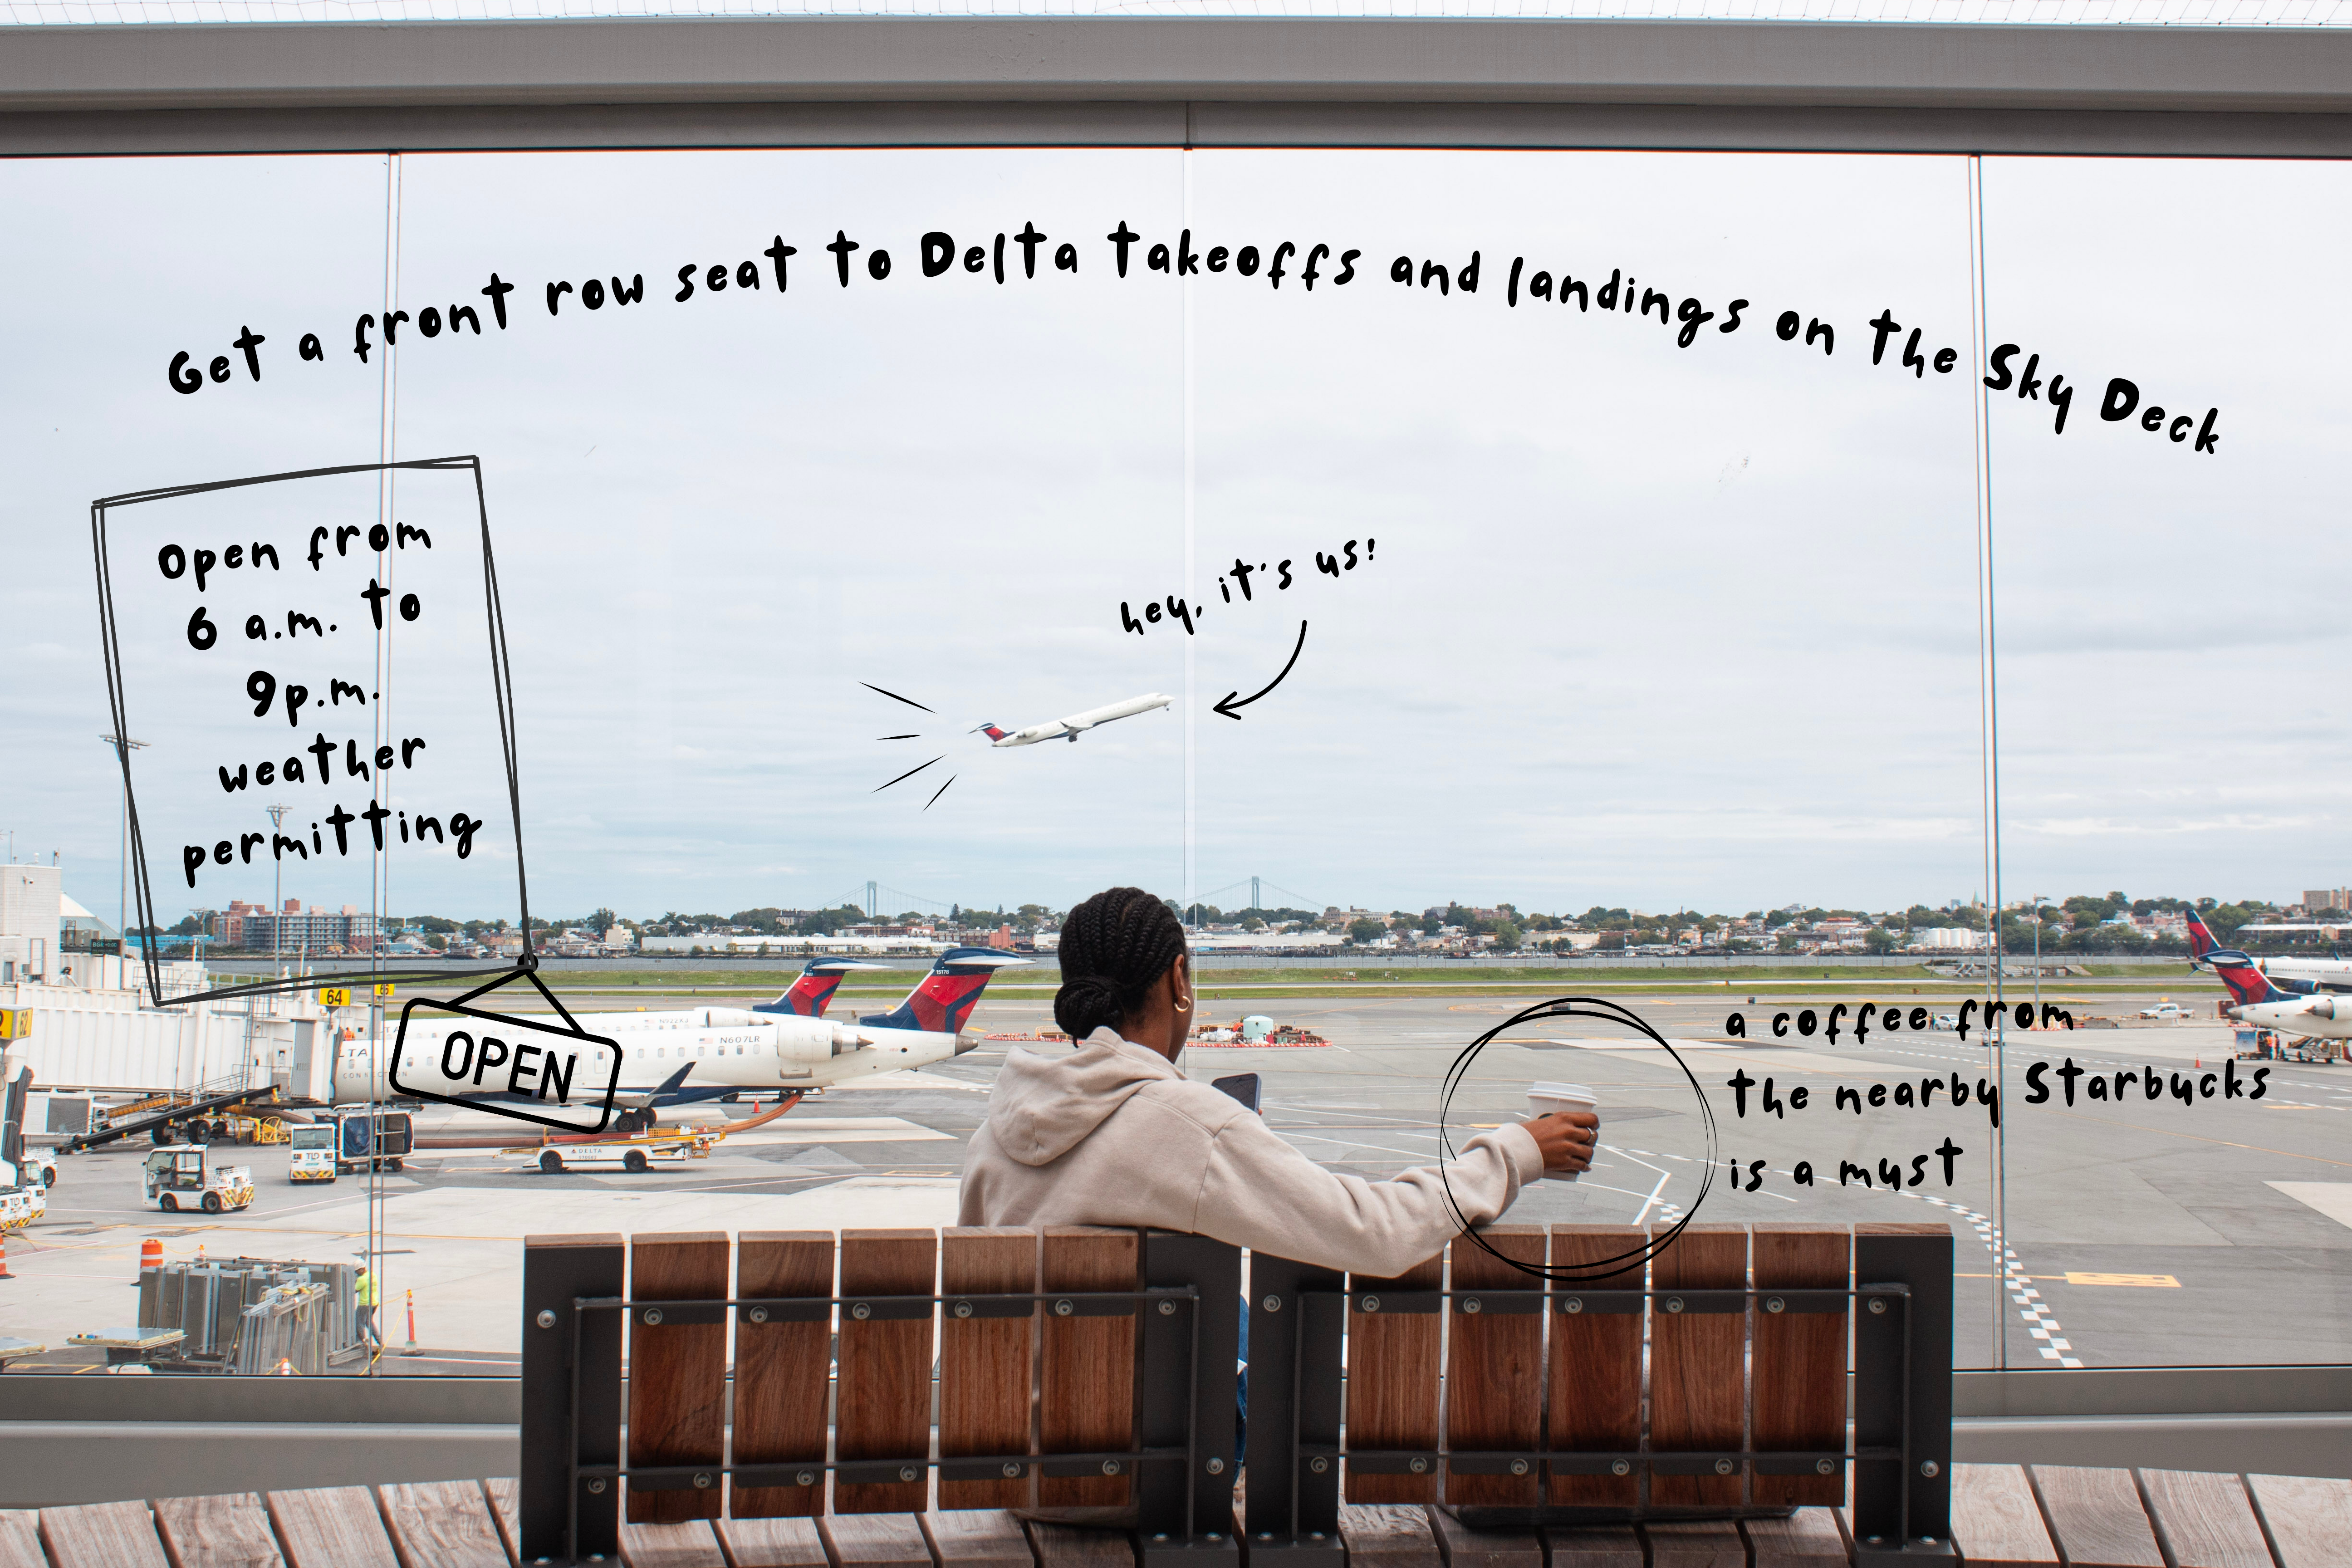 Get a front row seat to Delta takeoffs and landings on the Sky Deck
Open from
6 a.m. to
9p.m.
weather
permitting
hey, it's us!
OPEN
a coffee from
the nearby Starbucks
is a must
64
N607LR
DELTA